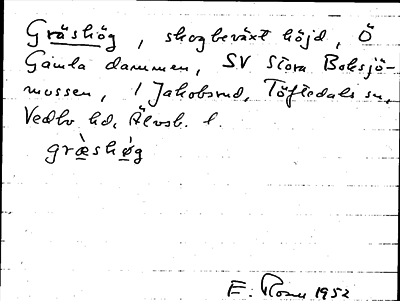 Gräshög, skogbeväxt höjd, Ö
Gamla dammen, SV Stora Boksjö-
mossen, 1 Jakobsrud, Töftedals sn,
Vedbo hd, Älvsb. l.
græ̀shø̀g
E. 1952